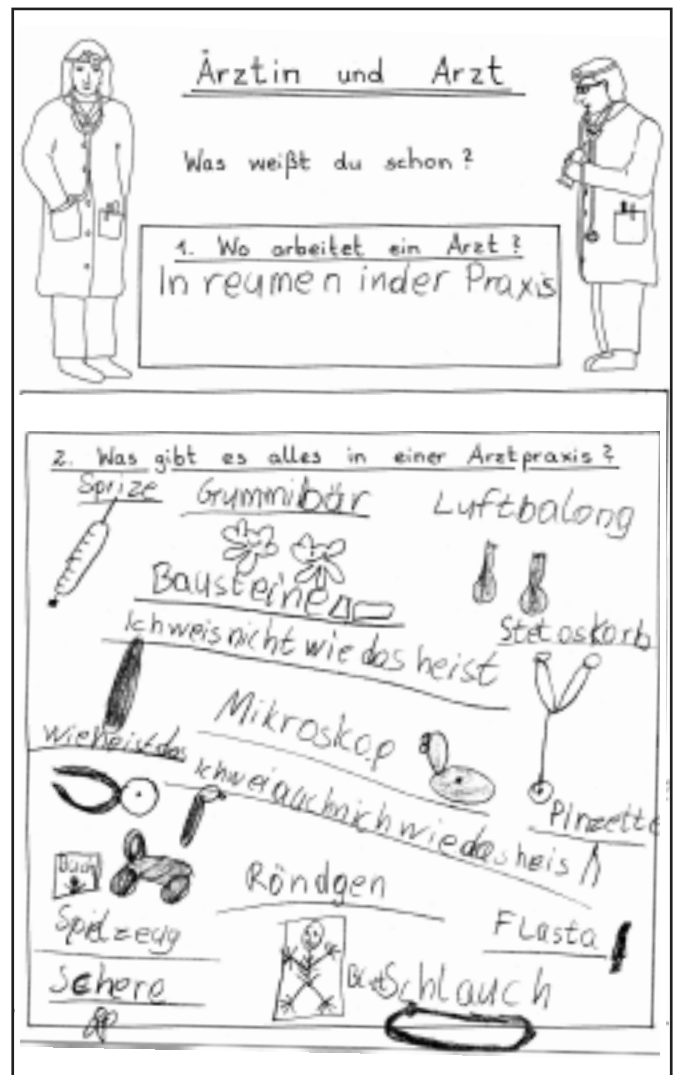 Ärztin und Arzt
Was weißt du schon?
1. Wo arbeitet ein Arzt?
In reumen inder Praxis
2. Was gibt es alles in einer Arztpraxis?
Sprize
Gummibär
Luftbalong
Bausteine
Ich weis nicht wie das heist
Stetoskorb
Mikroskop
wie heist das
Ich wei auch nich wie das heis
Pinzette
Buch
Röndgen
Spielzeug
Flasta
Schere
Schlauch